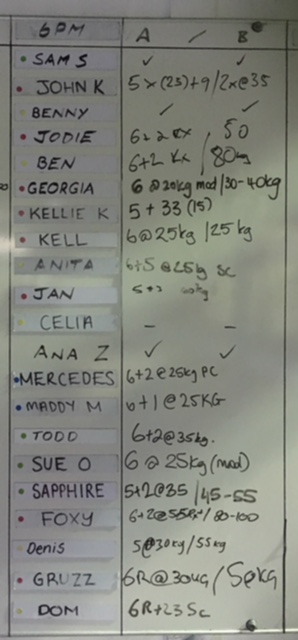 6PM A / B
SAM S ✓ ✓
JOHN K 5x(25)+9/2x@35
BENNY ✓ ✓
JODIE 6+2 Rx / 50
BEN 6+2 Rx / 80kg
GEORGIA 6 @ 20kg mod /30-40kg
KELLIE K 5 + 33 (15)
KELL 6@25kg /25kg
ANITA 6+5 @25kg SC
JAN 5+3
CELIA - -
ANA Z ✓ ✓
MERCEDES 6+2@25kg PC
MADDY M 6+1@25KG
TODD 6+2@35kg.
SUE O 6 @ 25kg (mod)
SAPPHIRE 5+2@35 /45-55
FOXY 6+2@ / 80-100
Denis 5@30kg/55kg
GRUZZ 6R@30KG / 50KG
DOM 6R+23 Sc